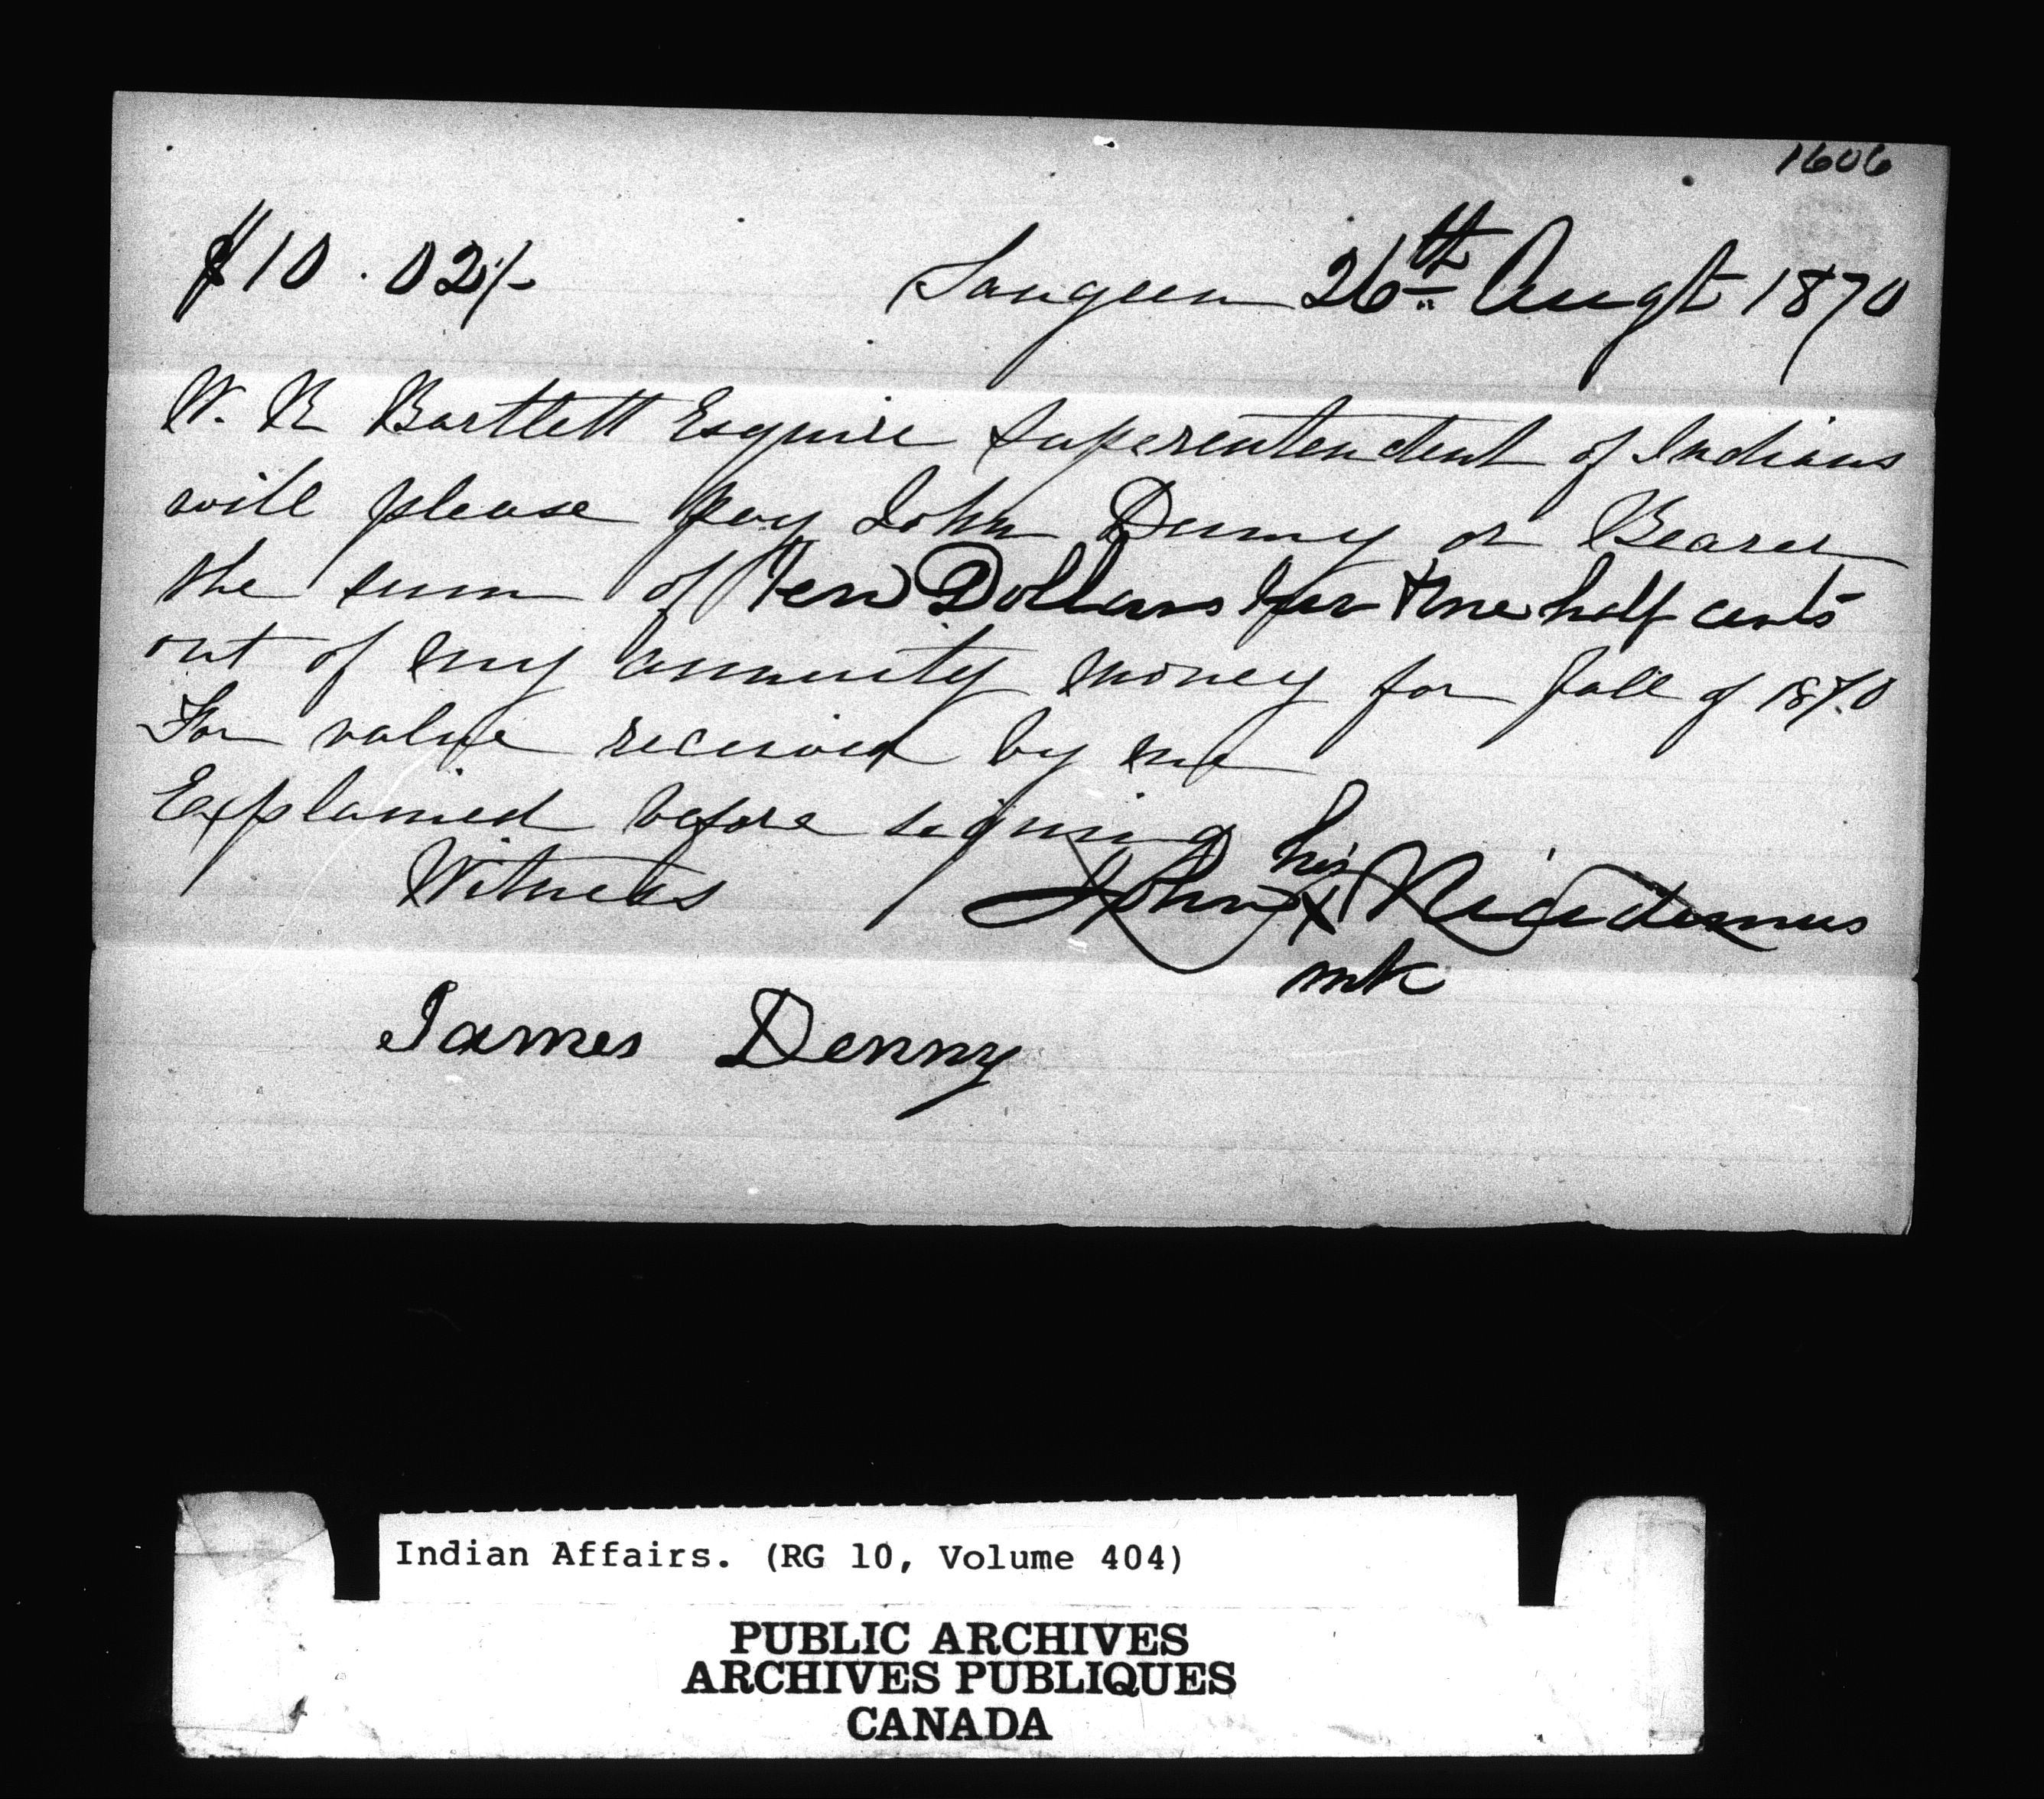 1606
$10.02½ Saugeen 26th Augt 1870
W. R Bartlett Esquire Superentendent of Indians
will please pay John Denny or Bearer
the sum of Ten Dollars & one half cents
out of my annuity money for fall of 1870
For value received by me
Explained before signing
his
Witness John X Nicodemus
mk
James Denny
Indian Affairs. (RG 10, Volume 404)
PUBLIC ARCHIVES
ARCHIVES PUBLIQUES
CANADA